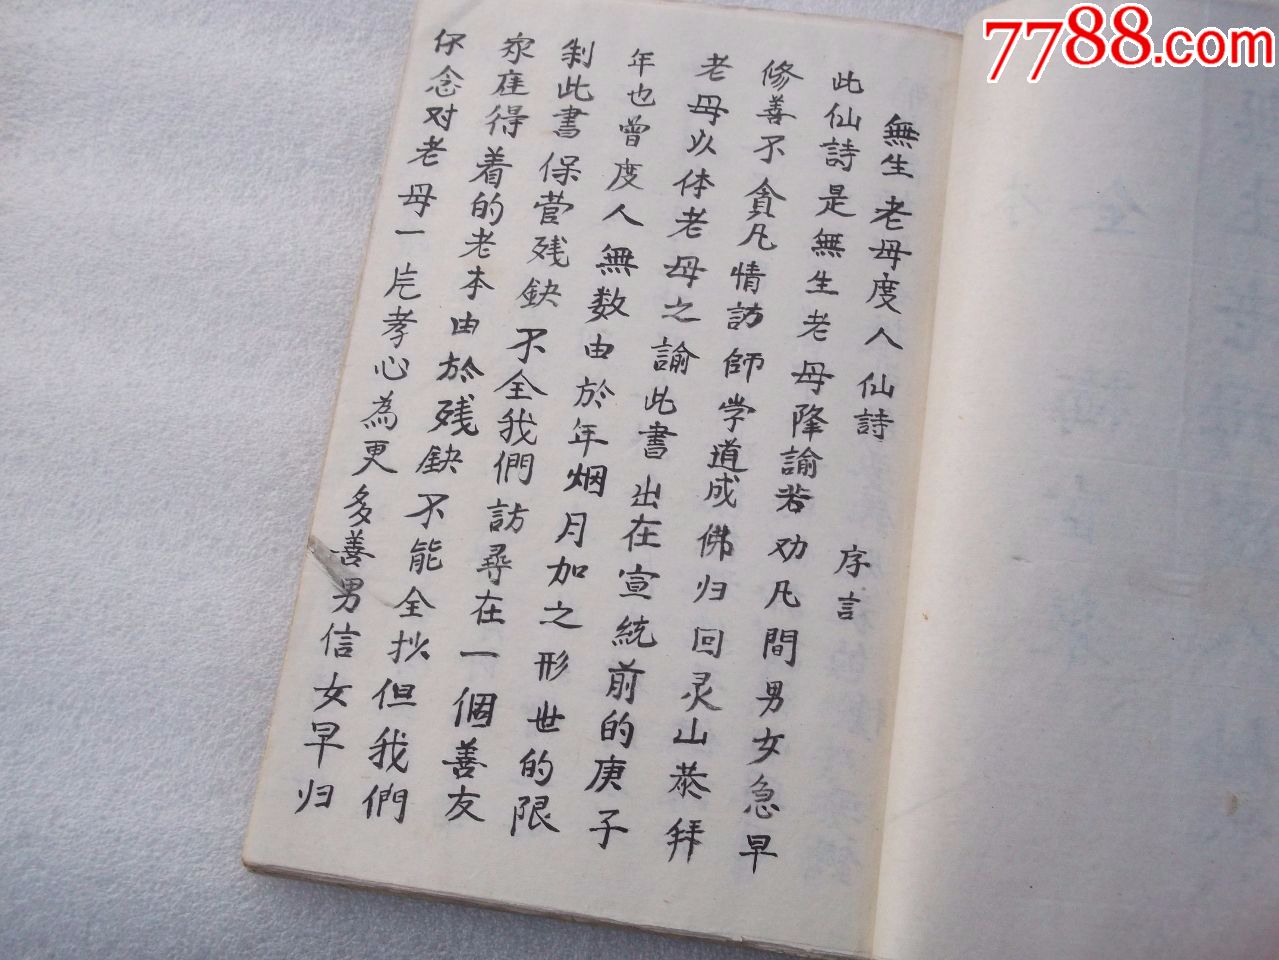 7788.com
無生老母度人仙詩 序言
此仙詩是無生老母降諭若劝凡間男女急早
修善不貪凡情訪師学道成佛归回灵山恭拜
老母以体老母之諭此書出在宣統前的庚子
年也曾度人無数由於年烟月加之形世的限
制此書保管残缺不全我們訪尋在一個善友
家庭得着的老本由於残缺不能全抄但我們
仦念对老母一片孝心為更多善男信女早归